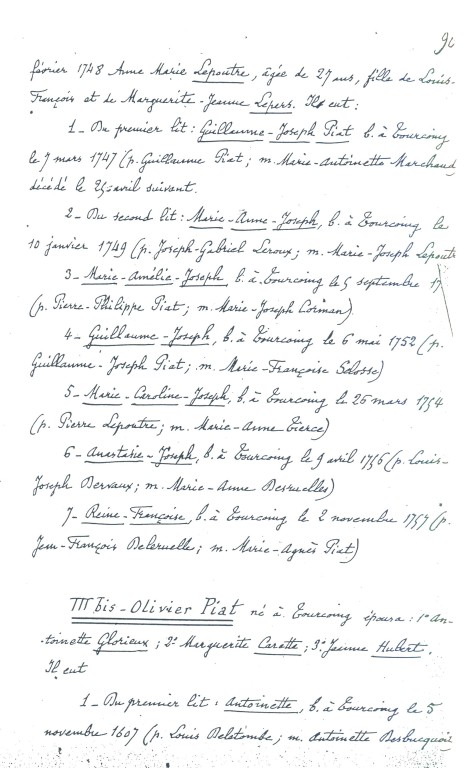 90
février 1748 Anne Marie Lepoutre, âgée de 27 ans, fille de Louis-
François et de Marguerite-Jeanne Lepers. Il eut :
1 - Du premier lit : Guillaume-Joseph Piat b. à Tourcoing
le 7 mars 1747 (p. Guillaume Piat ; m. Marie-Antoinette Marchand
décédé le 25 avril suivant.
2 - Du second lit : Marie-Anne-Joseph, b. à Tourcoing le
10 janvier 1749 (p. Joseph-Gabriel Leroux ; m. Marie-Joseph Lepoutr
3 - Marie-Amélie-Joseph b. à Tourcoing le 5 septembre 17
(p. Pierre-Philippe Piat ; m. Marie-Joseph Corman)
4 - Guillaume-Joseph, b. à Tourcoing le 6 mai 1752 (p.
Guillaume-Joseph Piat ; m. Marie-Françoise Selosse)
5 - Marie-Caroline-Joseph, b. à Tourcoing le 26 mars 1754
(p. Pierre Lepoutre ; m. Marie-Anne Tierce)
6 - Anastasie-Joseph, b. à Tourcoing le 9 avril 1756 (p. Louis-
Joseph Dervaux ; m. Marie-Anne Desruelles)
7 - Reine-Françoise, b. à Tourcoing le 2 novembre 1757 (p.
Jean-François Deleruelle ; m. Marie-Agnès Piat)
III bis - Olivier Piat né à Tourcoing épousa : 1° An-
-toinette Glorieux ; 2° Marguerite Carette ; 3° Jeanne Hubert.
Il eut
1 - Du premier lit : Antoinette, b. à Tourcoing le 5
novembre 1607 (p. Louis Deletombe ; m. Antoinette Desbucquois